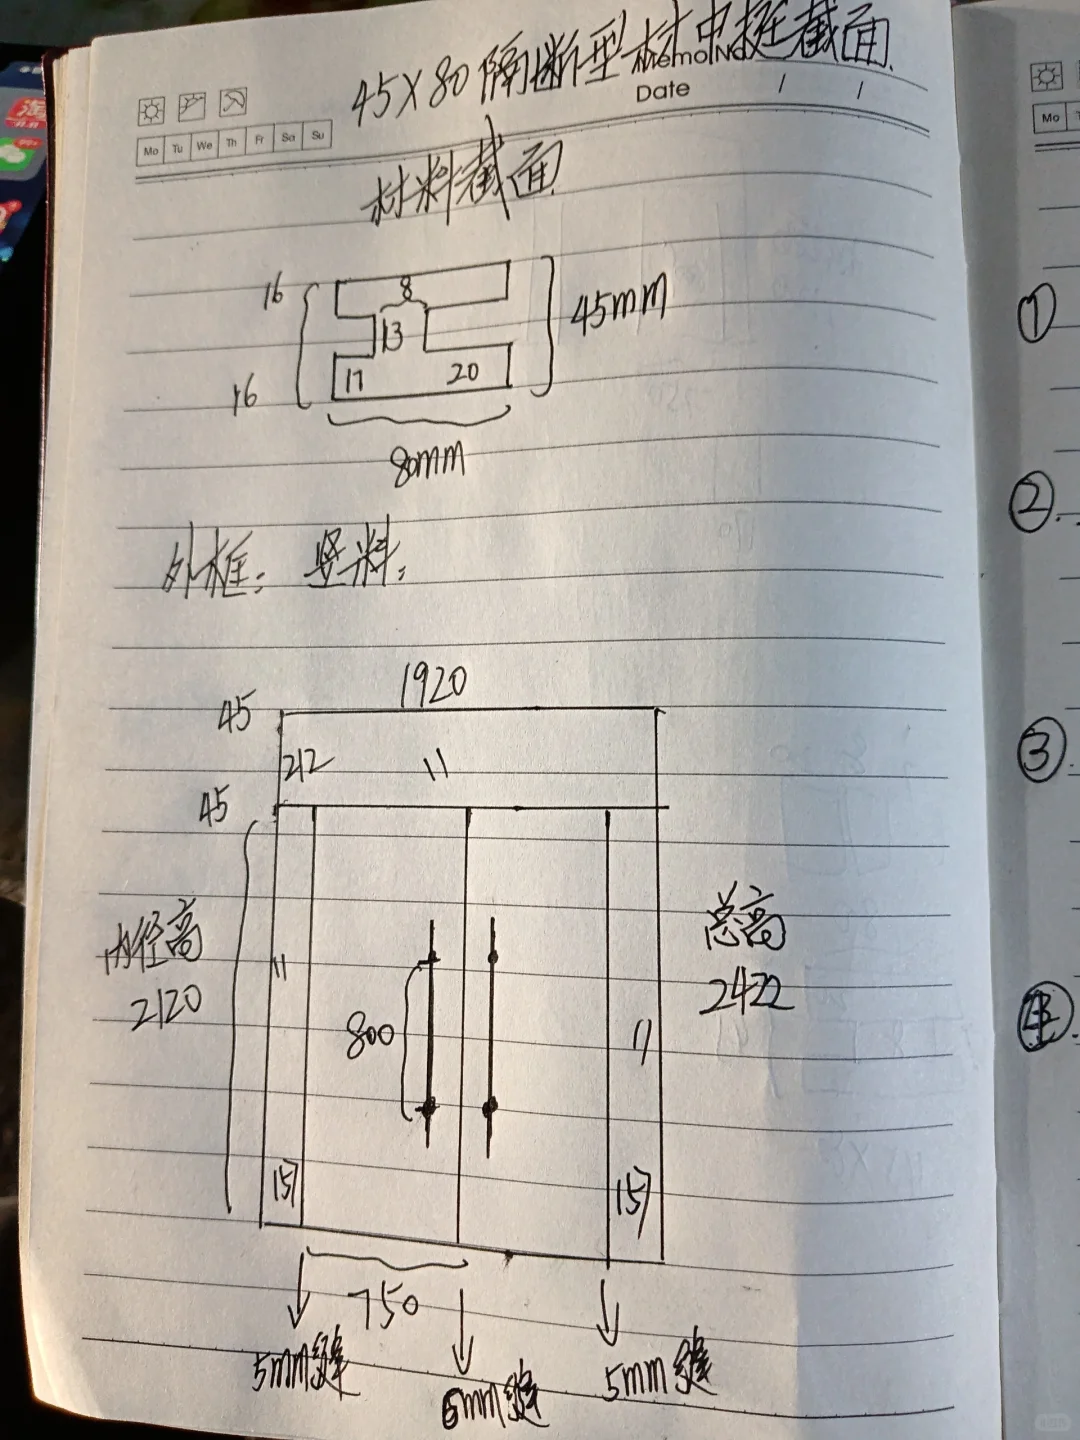 45X80隔断型材中挺截面.
Memo No.
Date / /
Mo Tu We Th Fr Sa Su
Mo
材料截面
16 8 45mm
13
16 17 20
80mm
外框: 竖料:
1920
45
212 11
45
内径高 总高
2120 11 2422
800 11
157 157
750
5mm缝 6mm缝 5mm缝
①
②
③
④